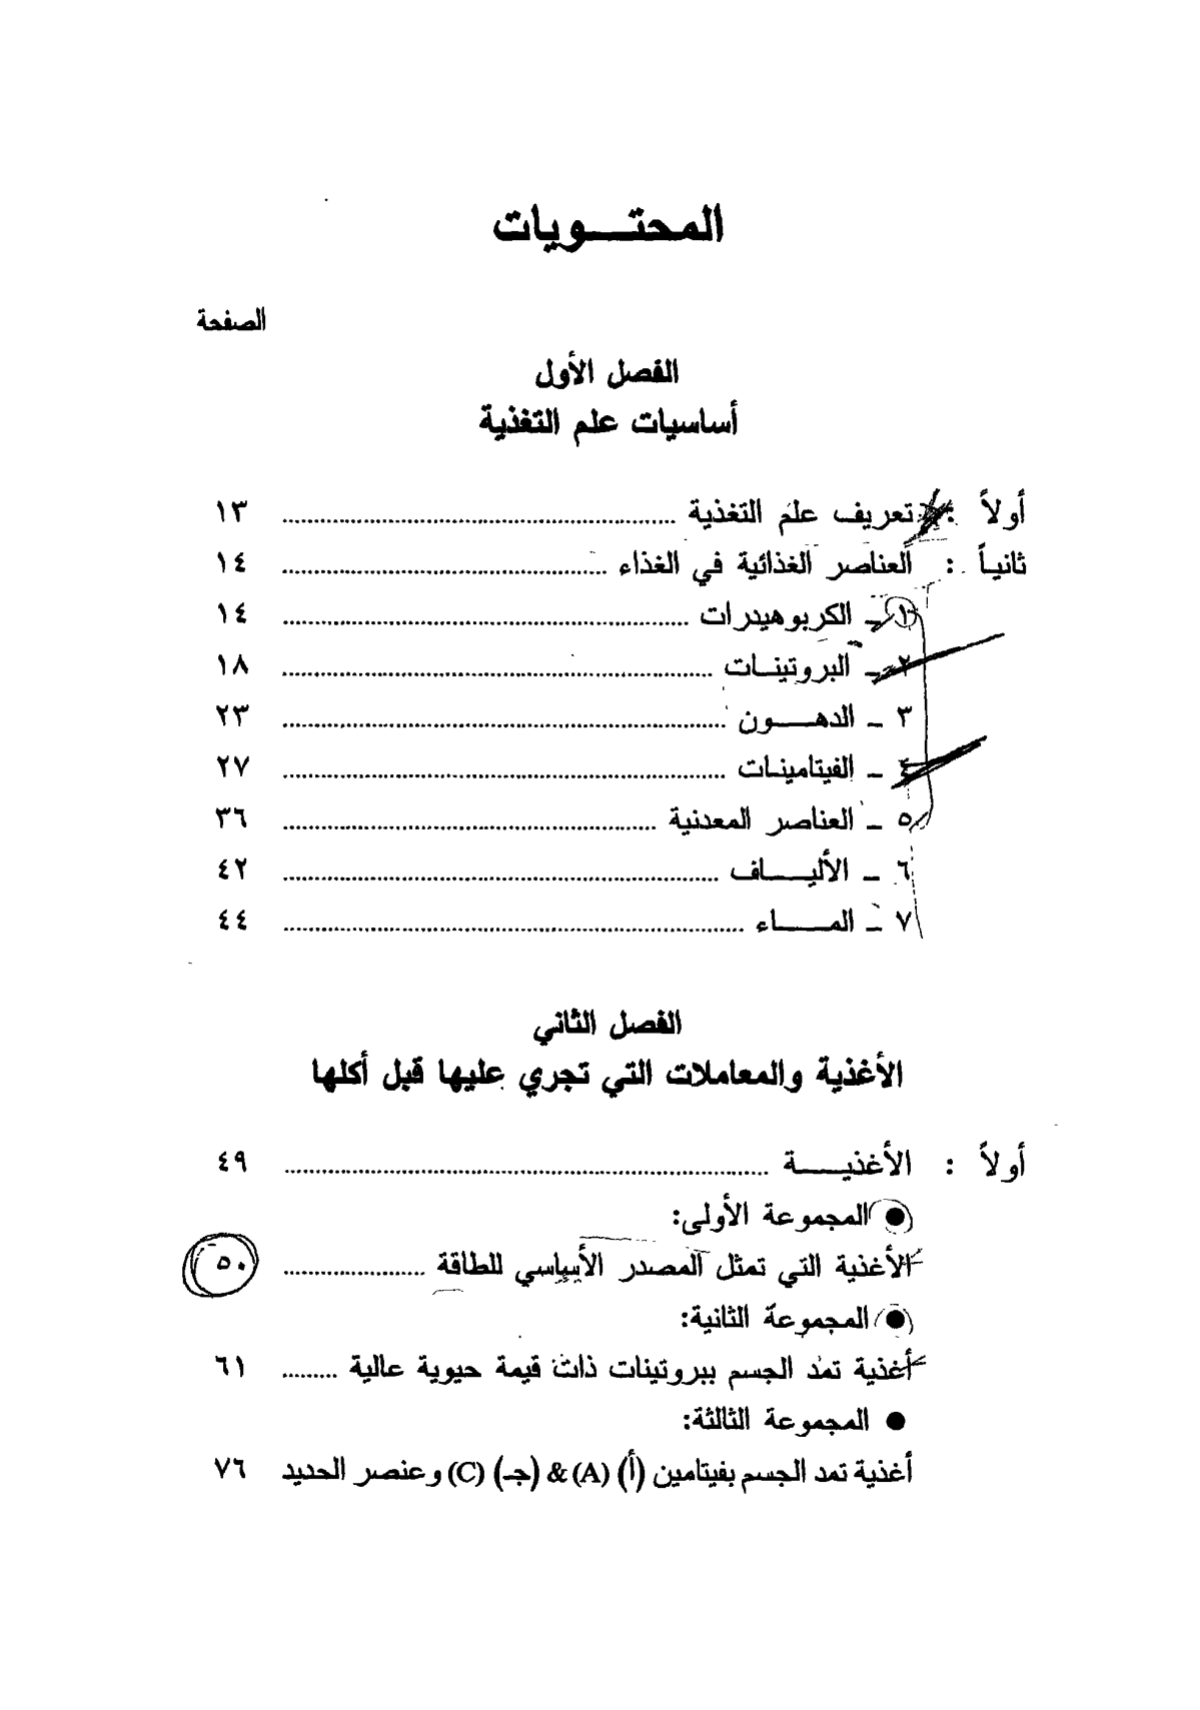 المحتويات
الصفحة
الفصل الأول
أساسيات علم التغذية
أولاً : تعريف علم التغذية ........ ١٣
ثانياً : العناصر الغذائية في الغذاء ........ ١٤
١ ـ الكربوهيدرات ........ ١٤
٢ ـ البروتينات ........ ١٨
٣ ـ الدهون ........ ٢٣
٤ ـ الفيتامينات ........ ٢٧
٥ ـ العناصر المعدنية ........ ٣٦
٦ ـ الألياف ........ ٤٢
٧ ـ الماء ........ ٤٤
الفصل الثاني
الأغذية والمعاملات التي تجري عليها قبل أكلها
أولاً : الأغذية ........ ٤٩
● المجموعة الأولى:
الأغذية التي تمثل المصدر الأساسي للطاقة ........ ٥٠
● المجموعة الثانية:
أغذية تمد الجسم ببروتينات ذات قيمة حيوية عالية ........ ٦١
● المجموعة الثالثة:
أغذية تمد الجسم بفيتامين (أ) (A) & (جـ) (C) وعنصر الحديد ٧٦